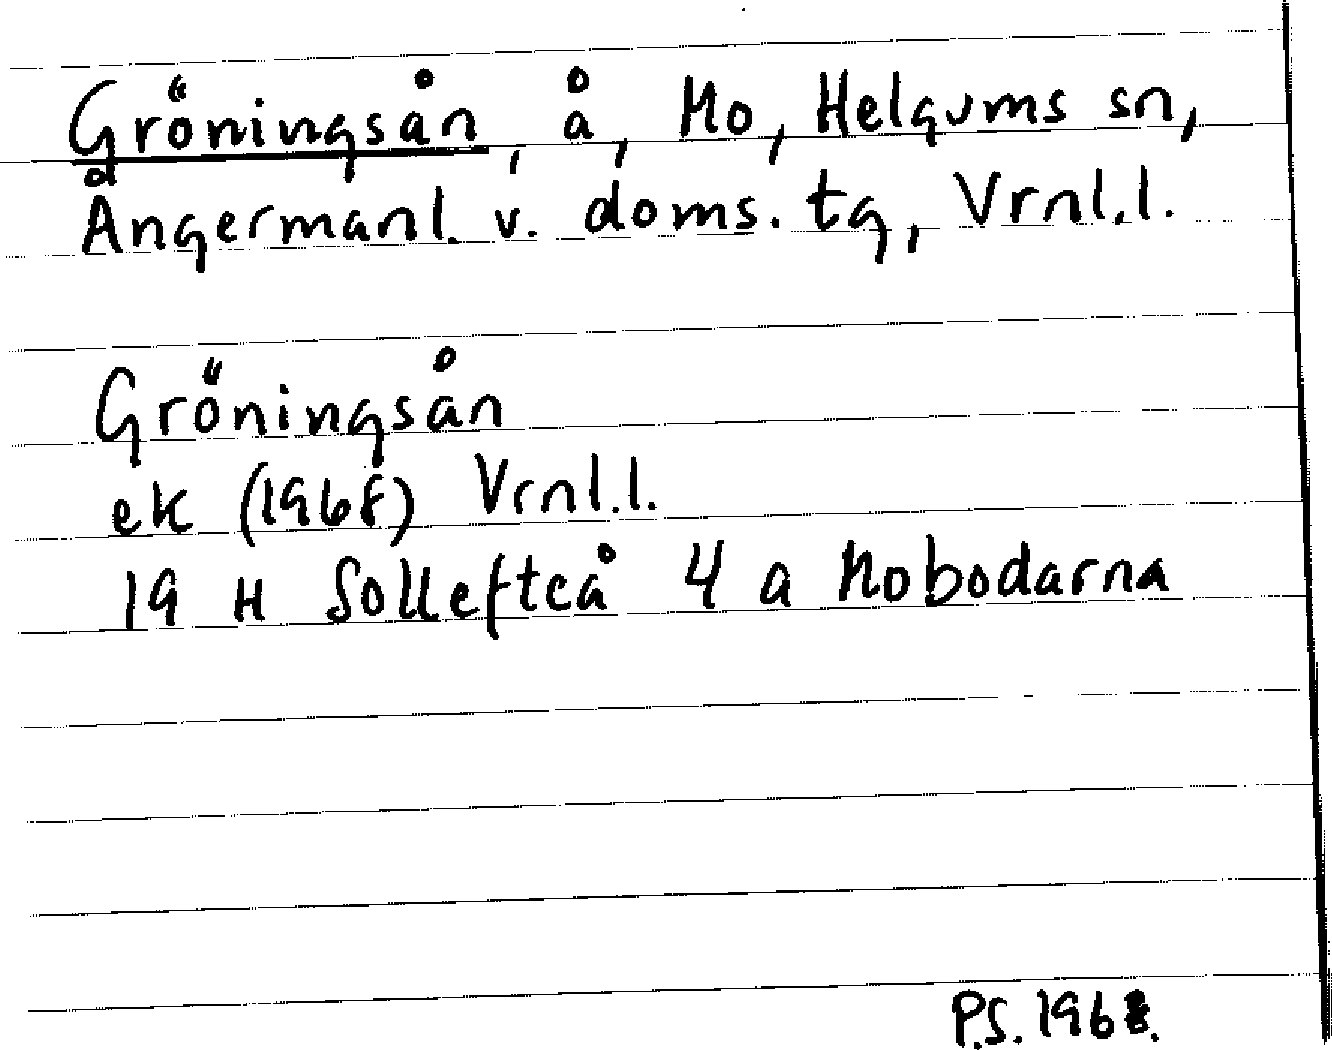 Gröningsån, å, Mo, Helgums sn,
Ångermanl. v. doms. tg, Vrnl.l.
Gröningsån
ek (1968) Vrnl.l.
19 H Sollefteå 4 a Mobodarna
P.S. 1968.